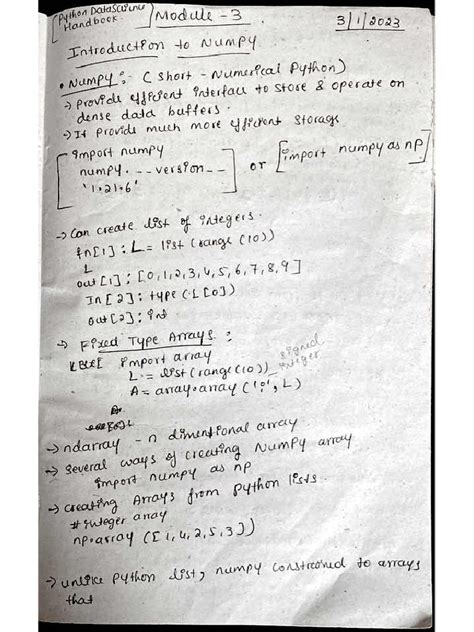 [Python DataScience Handbook]
Module - 3
3/1/2023
Introduction to Numpy
• Numpy :- ( Short - Numerical Python)
→ Provide efficient interface to store & operate on
dense data buffers.
→ It provide much more efficient storage
import numpy
numpy. __ version __
'1.21.6'
or [import numpy as np]
→ Can create list of integers.
In[1] : L = list (range (10))
L
out [1] : [0,1,2,3,4,5,6,7,8,9]
In [2] : type (L[0])
out [2] : int
→ Fixed Type Arrays :
import array
L = list (range(10))
signed integer
A = array.array ('i', L)
→ ndarray - n dimentional array
→ Several ways of creating NumPy array
import numpy as np
→ Creating Arrays from Python lists.
# integer array
np.array ([1,4,2,5,3])
→ unlike Python list, numpy constrained to arrays
that